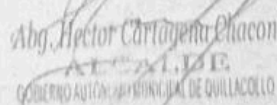 Abg. Hector Cartagena Chacon
ALCALDE
GOBIERNO AUTONOMO MUNICIPAL DE QUILLACOLLO